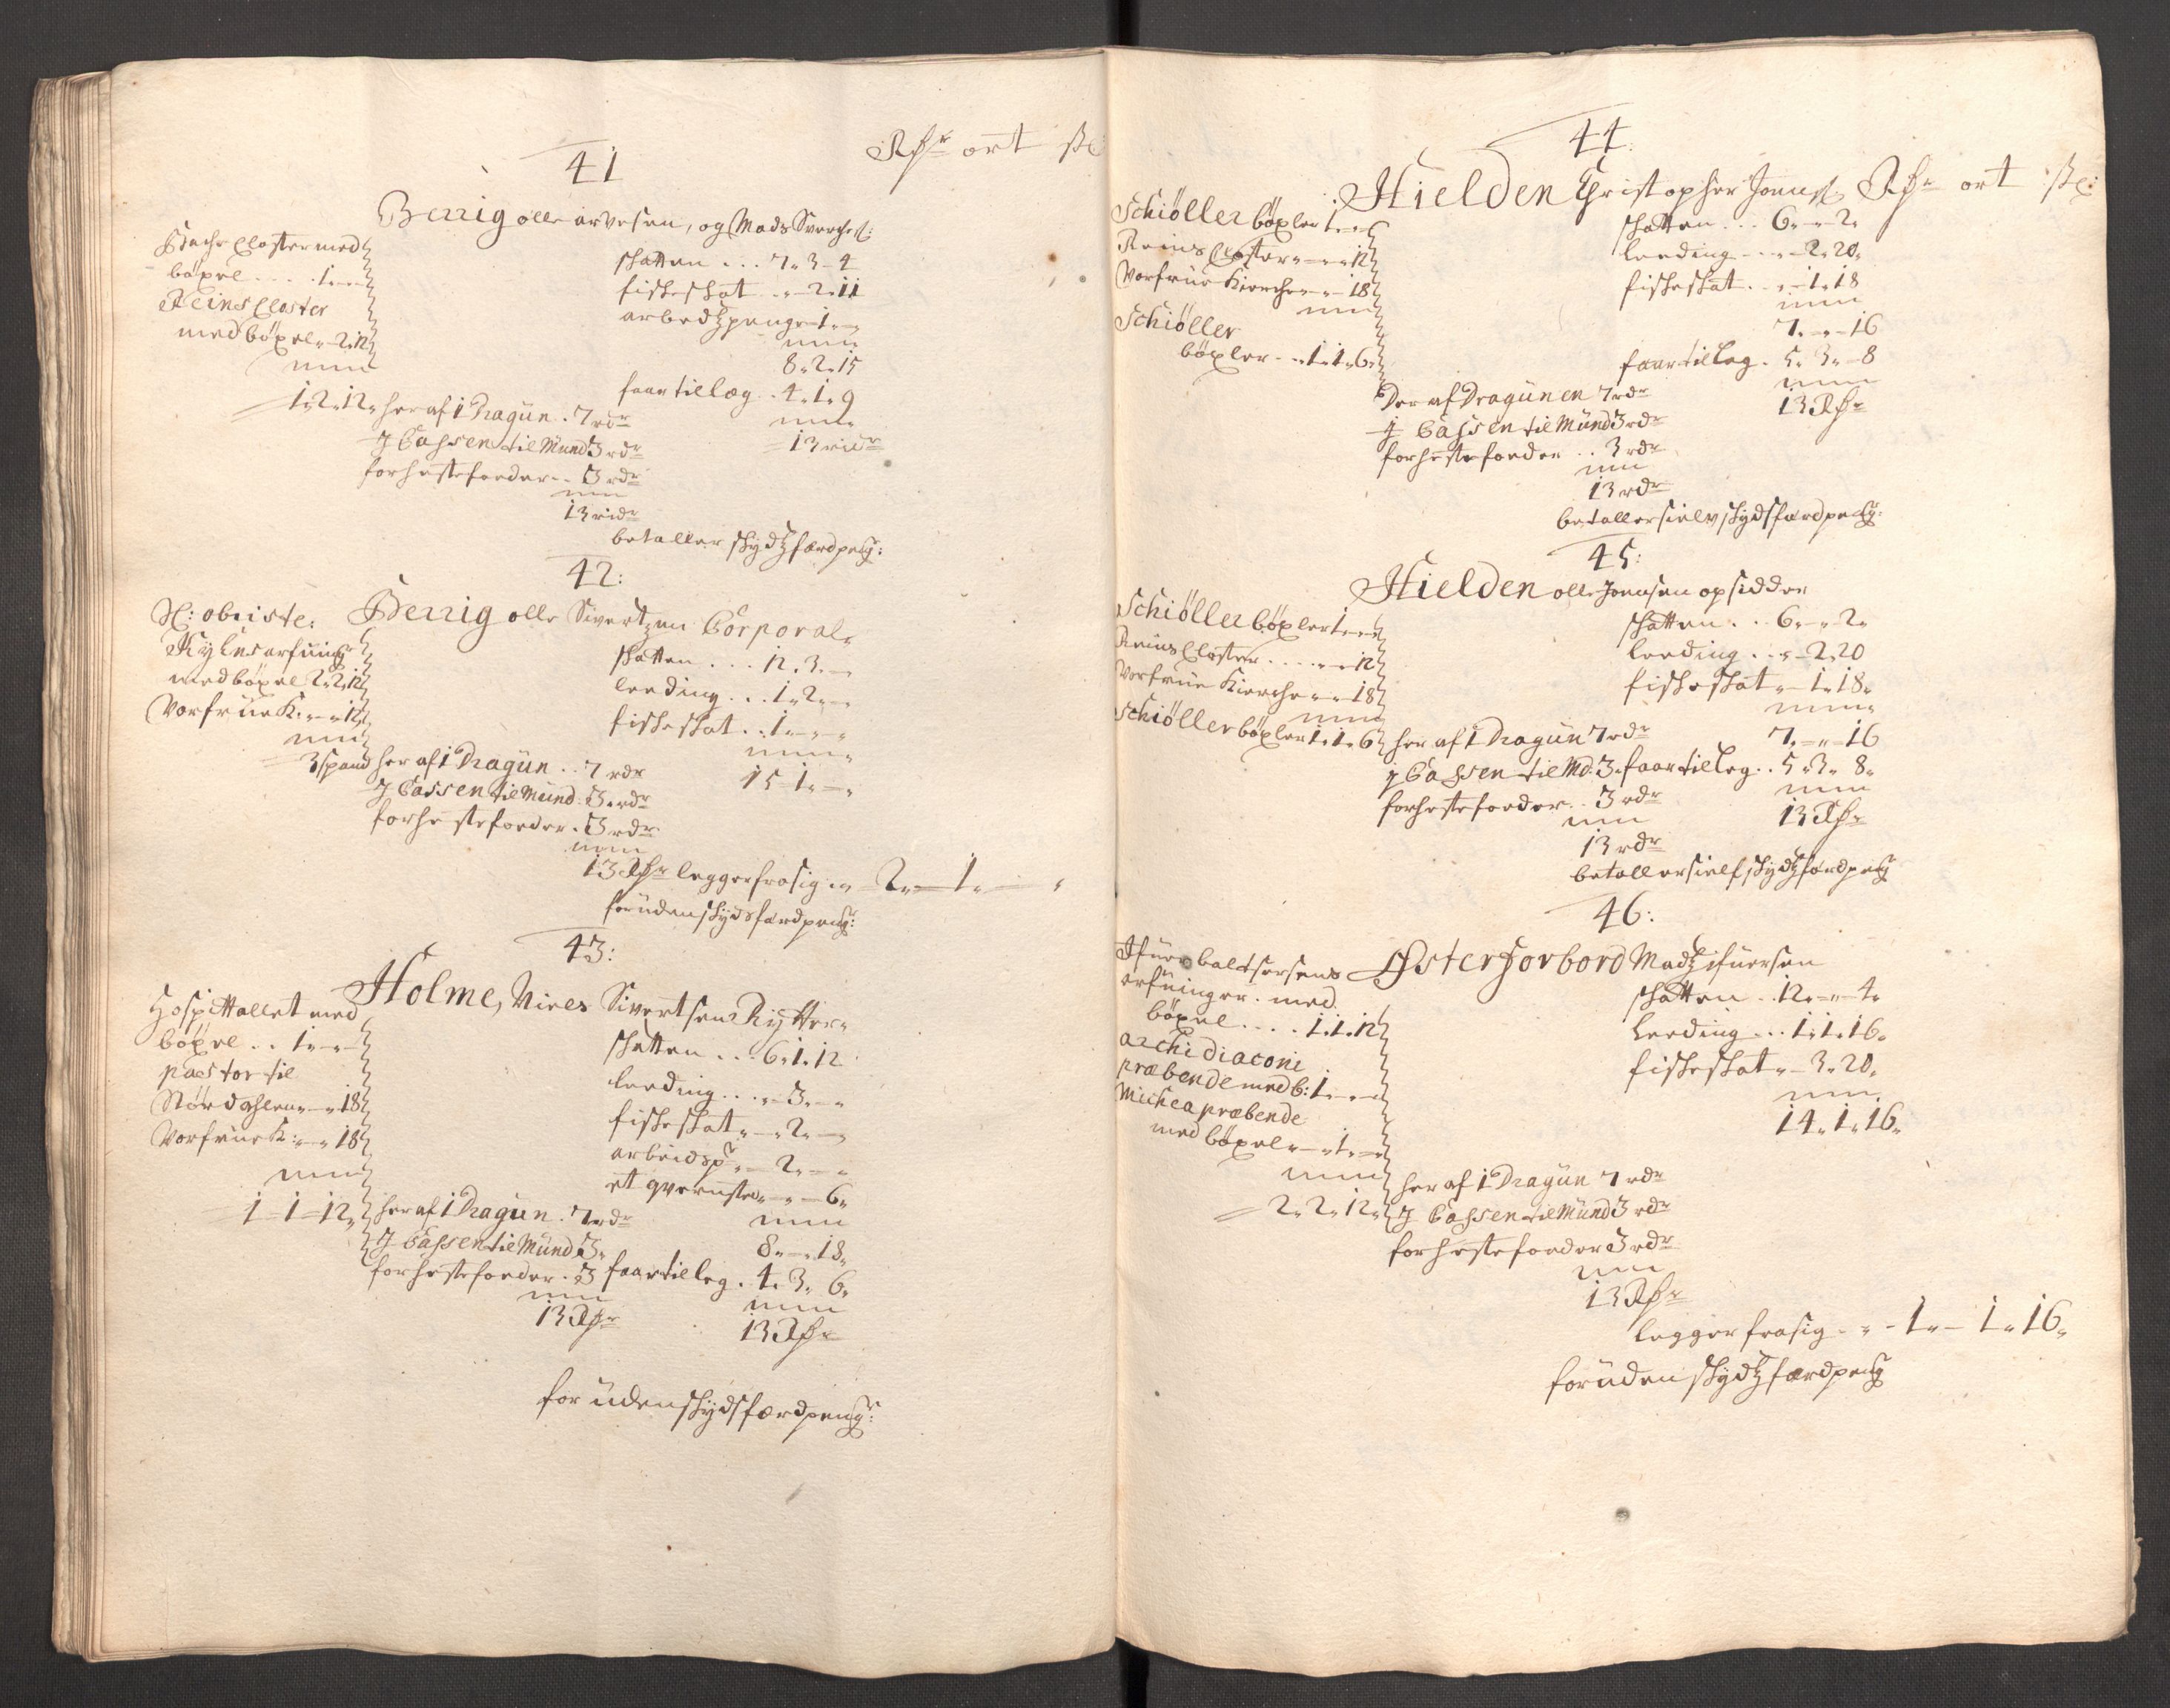 41
Rdr ort sk
Berrig olle arvesen, og Mads Sverches:
Bache Closter med
böxel . . . . 1 „ – „
Reins Closter
med böxel „ 2„ 12
1„ 2„ 12„
skatten . . . 7„ 3 – 4
fiskeskat . „ – 2„ 11
arbedtzpenge – 1„ – „
8„ 2„ 15
faar tillæg . 4„ 1„ 9
13 ridr
her af 1 Dragün . 7 rdr
J Cassen til Mund 3 rdr
for hestefoeder . . 3 rdr
13 ridr
betaller skydtzfærdpeng:
42:
Berrig olle Sivertzen Corporal„
Sl: obriste:
Kylus arfuing
med böxel 2„ 2„ 12
Vor früe K: „ – „ 12
3 spand
skatten . . . 12„ 3„ –
leeding . . . 1„ 2„ – „
fiskeskat . . 1„ – „ „
15 – 1„ – „
her af 1 Dragün . . 7 rdr
J Cassen til Mund . 3„ rdr
for hestefoeder . 3 rdr
13 Rdr legger fra sig „ „ – 2„ – 1„ – „
forüden skydsfærdpeng:
43:
Holme, Niels Sivertsen Rytter„
Hospittallet med
böxel . . 1„ – „
pastor til
Størdahlen „ – „ 18
Vor früe K: „ – „ 18
1 – 1 – 12„
skatten . . . 6„ 1„ 12
leeding . . . „ – 3„ – „
fiskeskat „ – „ 2„ – „
arbeidsp „ – 2„ – „
et qvernsted „ – „ – 6„
8„ – „ 18„
her af 1 Dragün . 7 rdr
J Cassen til Mund 3„
for hestefoeder . 3 faar tilleg . 4„ 3„ 6„
13 Rdr 13 Rdr
for üden skydsfærdpeng:
44:
Hielden Christopher Jonns: Rdr ort sk:
Schiøller böxler 1„ – „
Reins Closter „ – „ 12
Vor früe Kierche „ – „ 18
Schiøller
böxler . . 1„ 1„ 6„
skatten . . . 6„ – „ 2„
leeding . . . „ – 2„ 20„
fiskeskat . „ – 1„ 18
7„ – „ – 16
faar tilleg . 5„ 3„ – 8
13 Rdr
Der af Dragünen 7 rdr
J Cassen til Münd 3 rdr
for hestefoeder . . 3 rdr
13 rdr
betaller sielv skydsfærdpeng:
45:
Hielden olle Joensen opsidder
Schiøller böxler 1„ – „
Reins Closter . . . . „ – „ 12
Vor früe Kierche „ – „ 18
Schiøller böxler 1„ 1„ 6
skatten . . 6„ – „ 2„
leeding . . . „ – 2„ 20
fiskeskat „ – 1„ 18„
7„ – „ – 16
her af 1 Dragün 7 rdr
J Cassen til Md: 3„ faar tilleg . . 5„ 3„ 8„
for hestefoeder . . 3 rdr
13 rdr 13 Rdr
betaller sielf skydtzfærdpeng
46:
Øster Forbord Madtz Ifuersen
Ifuer baltsersens
erfuinger . med
böxel . . . . 1„ 1„ 12
archidiaconi
præbende med b: 1„ – „
Michea præbende
med böxel „ – „ 1„ – „
2„ 2„ 12„
skatten . . 12„ – „ 4„
leeding . . . 1„ 1„ 16„
fiskeskat „ – 3„ 20„
14„ 1„ 16„
her af 1 Dragün 7 rdr
J Cassen til Münd 3 rdr
for hestefoeder 3 rdr
13 Rdr
legger fra sig . „ – 1„ – 1„ 16„
forüden skydtzfærdpeng